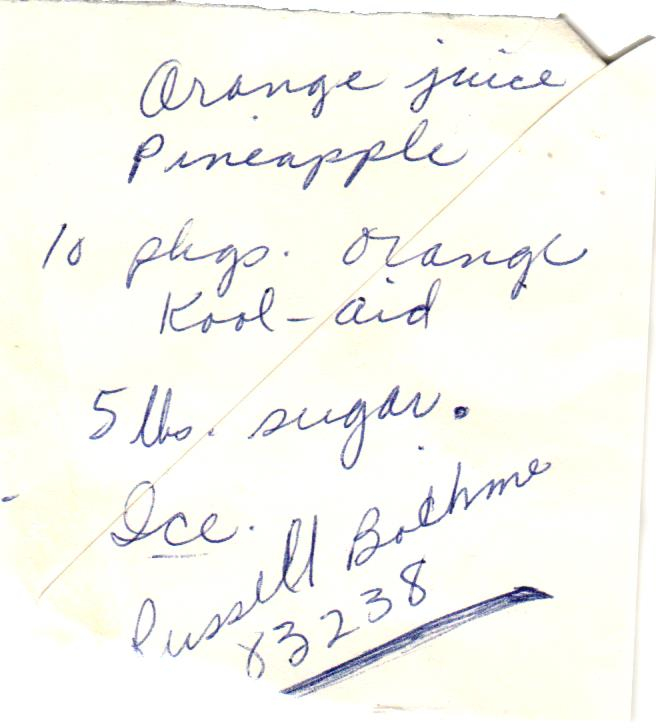 Orange juice
Pineapple
10 pkgs. orange
Kool-aid
5 lbs. sugar.
Ice.
Russell Bothme
83238